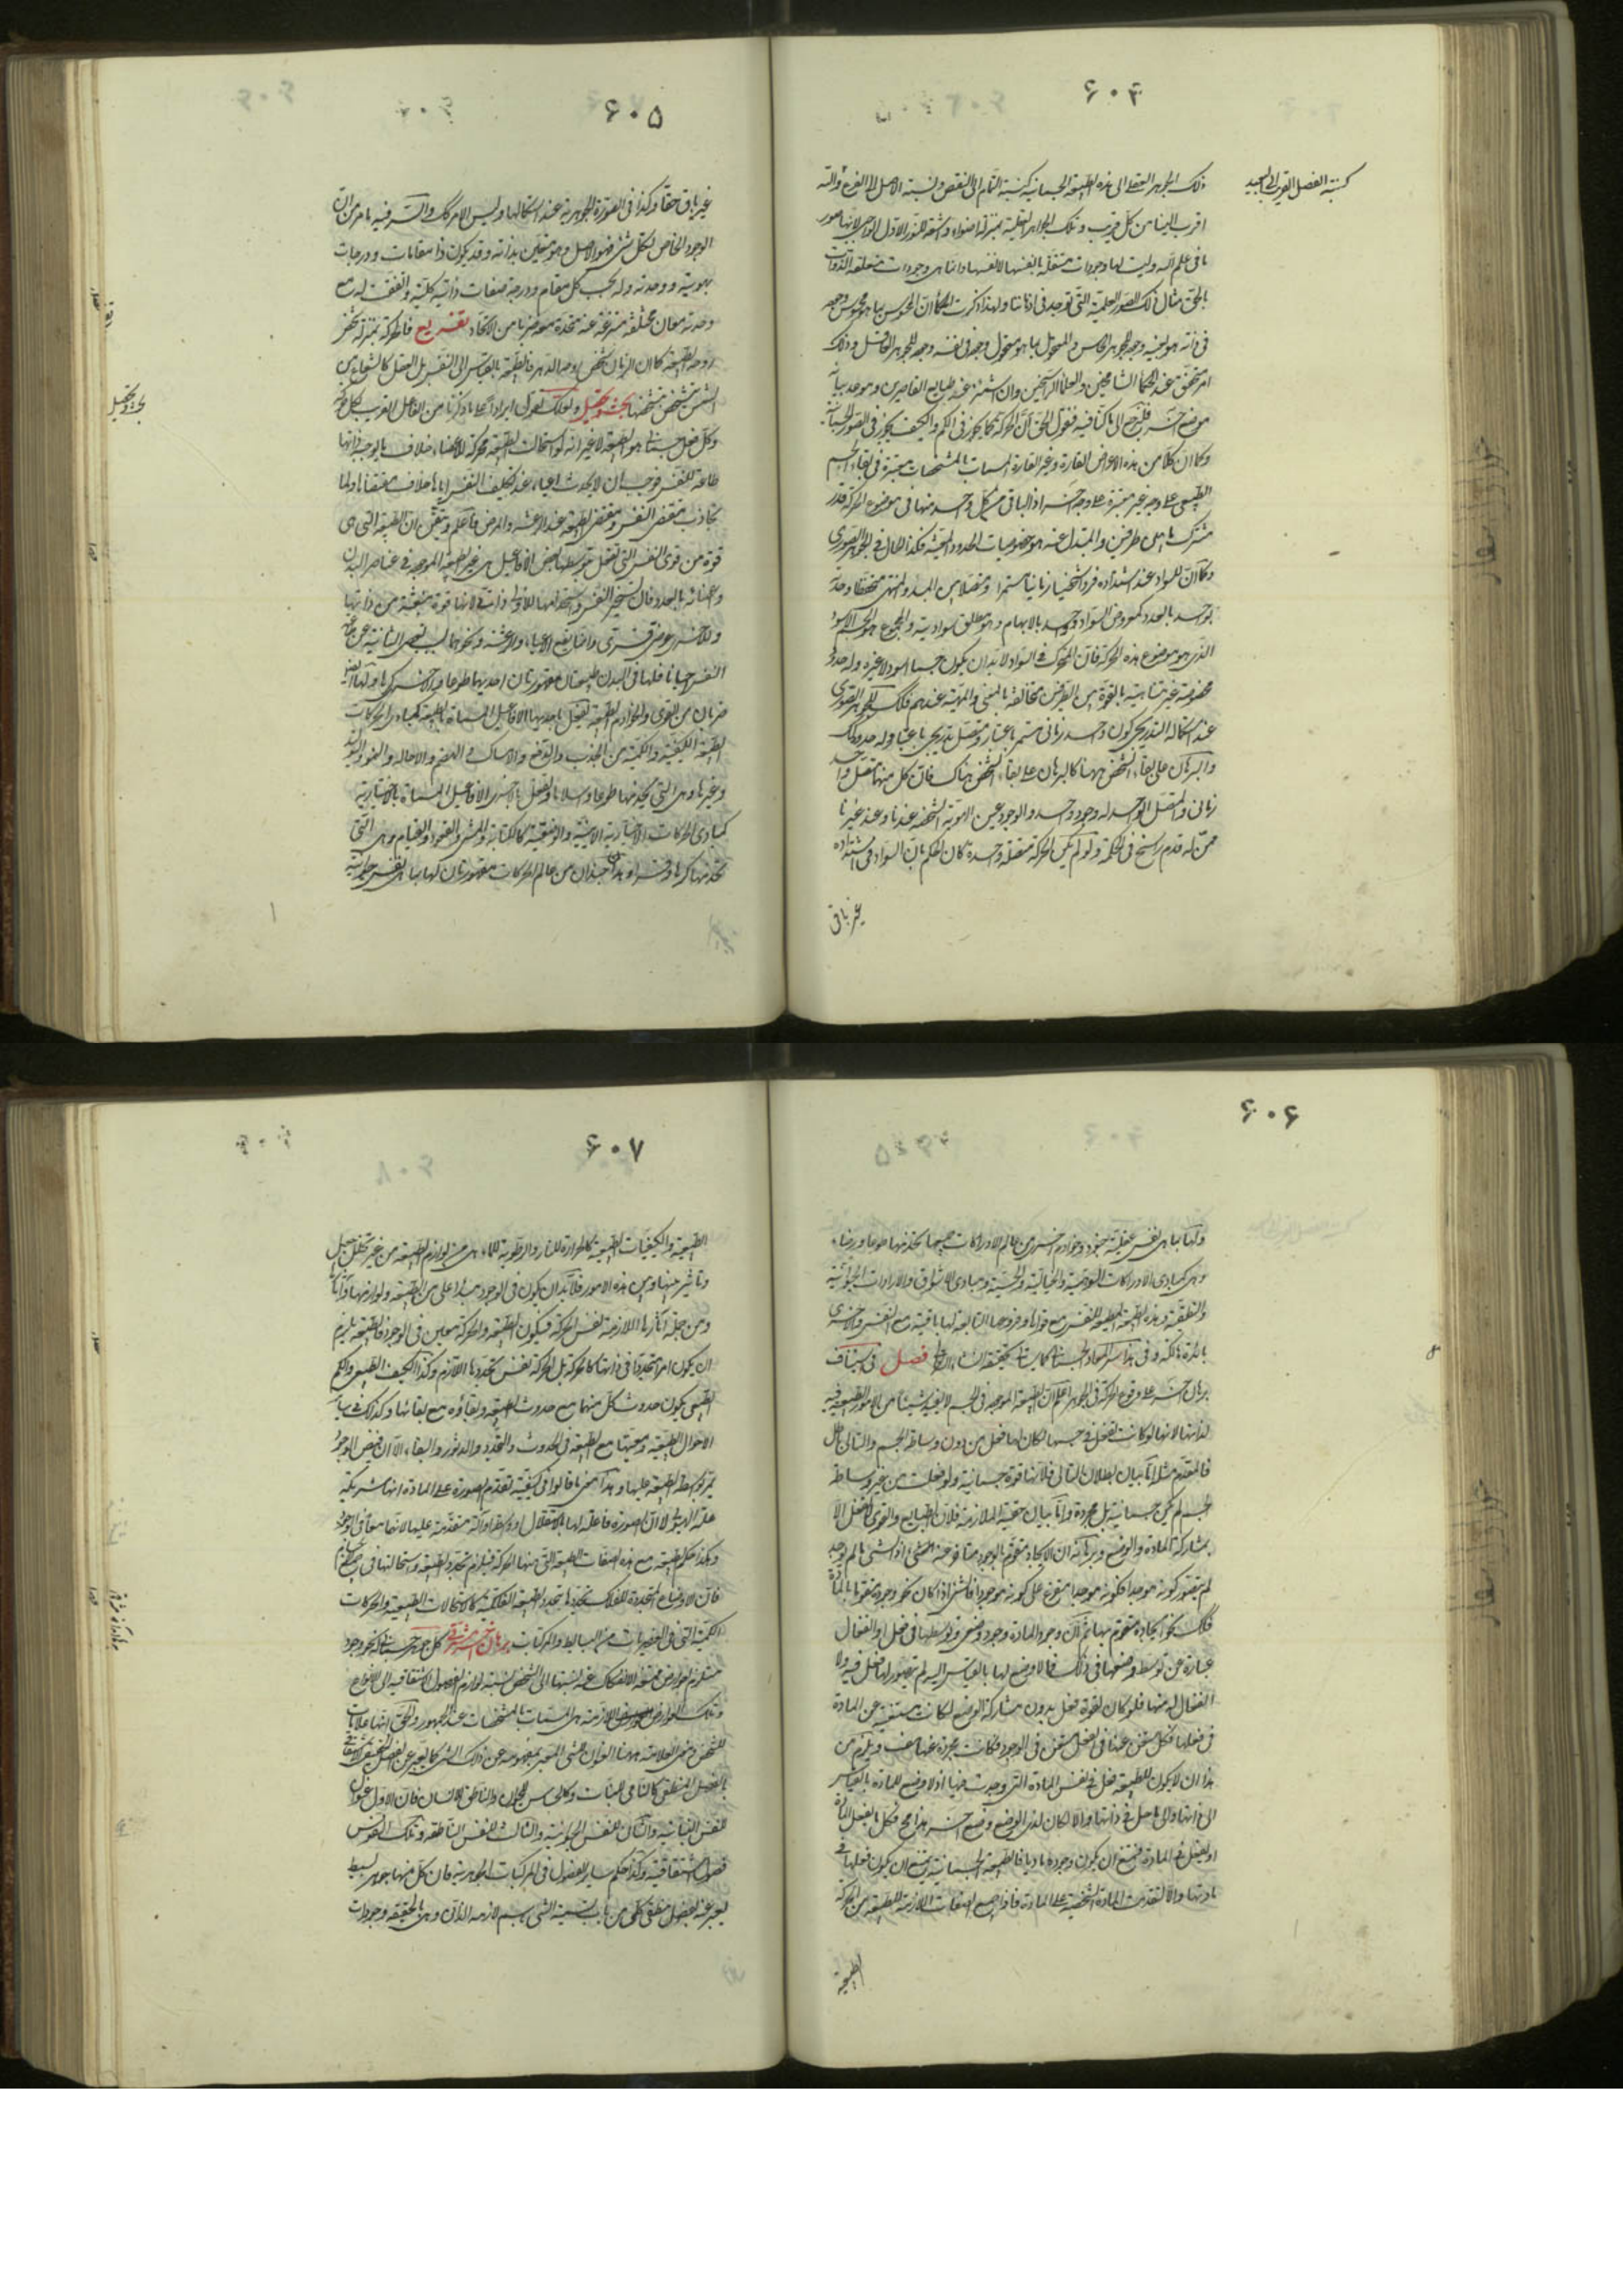 ۶۰۴
كنسبة الفصل القريب الى البعيد
ذلك الجوهر العقلى الى هذه الطبيعة الجسمانية كنسبة التام الى النقص ونسبة الاصل الى الفرع والله
اقرب الينا من كل قريب وتلك الجواهر العقلية بمنزلة اضواء واشعة للنور الاول الواجبى لانها صور
ما فى علم الله وليست لها وجودات مستقلة بانفسها لانفسها وانما هى وجودات متعلقة الذوات
بالحق مثال ذلك الصور العلمية التى توجد فى اذهاننا ولهذا ذكرت الحكماء ان المحسوس بما هو محسوس وجوده
فى ذاته هو بعينه وجوده للجوهر الحاس والمتخيل بما هو متخيل وجوده فى نفسه وجوده للجوهر العاقل وذلك
امر محقق عند الحكماء الشامخين والعلماء الراسخين وان اشمئز عنه طباع القاصرين وموعد بيانه
موضع آخر فلنرجع الى ما كنا فيه فنقول الحق ان الحركة كما يجوز فى الكم والكيف يجوز فى الصور الجسمانية
وكما ان كلا من هذه الاعراض القارة وغير القارة المسماة بالمشخصات معتبرة فى بقاء الجسم
الطبيعى على وجه غير معتبرة على وجه آخر اذ الباقى من كل واحد منها فى موضوع الحركة قدر
مشترك ما بين طرفين والمتبدل عنه هو خصوصيات الحدود المعينة فكذا الحال فى الجوهر الصورى
وكما ان للسواد عند اشتداده فردا شخصيا زمانيا مستمرا ومتصلا بين المبدء والمنتهى متحفظا وحدة
بواحد بالعدد كمعروض السواد وواحد بالابهام وهو مطلق سوادية والمجموع هو الجسم الاسود
الذى هو موضوع هذه الحركة فان المتحرك فى السواد لا بد ان يكون جسما اسود لا غيره وله حدود
مخصوصة غير متناهية بالقوة بين الطرفين متخالفة بالمعنى والمهية عندهم فكذلك للجوهر الصورى
عند استكماله التدريجى كون واحد زمانى مستمر باعتبار ومتصل تدريجى باعتبار وله حدود كذلك
والبرهان على بقاء الشخص ههنا كالبرهان على بقاء الشخص هناك فان كل منهما متصل واحد
زمانى والمتصل الواحد له وجود واحد والوجود عين الهوية الشخصية عندنا وعند غيرنا
ممن له قدم راسخ فى الحكمة ولو لم تكن الحركة متصلة واحدة كان الحكم بان السواد فى اشتداده
غير باق
۶۰۵
بحث وتحصيل
غير باق حقا وكذا فى الصورة الجوهرية عند استكمالها وليس الامر كذلك والسر فيه ما مر من ان
الوجود الخاص لكل شئ هو الاصل وهو متعين بذاته وقد يكون ذا مقامات ودرجات
بهويته ووحدته وله بحسب كل مقام ودرجة صفات ذاتية كلية واتفقت له مع
وحدته معان مختلفة منتزعة عنه متحدة معه ضربا من الاتحاد تفريع فالحركة بمنزلة شخص
روحه الطبيعة كما ان الزمان شخص روحه الدهر فالطبيعة بالقياس الى النفس بل العقل كالشعاع من
الشمس يتشخص بتشخصها بحث وتحصيل ولعلك تقول ايرادا على ما ذكرنا من الفاعل القريب لكل حركة
وكل فعل جسمانى هو الطبيعة لا غير انه لو استحالت الطبيعة محركة للاعضاء خلاف ما يوجبه ذاتها
طاعة للنفس فوجب ان لا يحدث اعياء عند تكليف النفس اياها خلاف مقتضاها ولما
تجاذب مقتضى النفس ومقتضى الطبيعة عند الرعشة والمرض فاعلم وتيقن ان الطبيعة التى هى
قوة من قوى النفس التى تفعل بتوسطها بعض الافاعيل هى غير الطبيعة الموجودة فى عناصر البدن
واعضائه بالعدد فان تسخير النفس واستخدامها للاولى ذاتى لانها قوة منبعثة عن ذاتها
وللاخرى عرضى قسرى وانما يقع الاعياء والرعشة ونحوهما بسبب تعصى الثانية عن طاعة
النفس احيانا فلها فى البدن طبيعتان مقهورتان احديهما طوعا والاخرى كرها ولهما ايضا
ضربان من القوى والخوادم الطبيعية تفعل باحديهما الافاعيل المسماة بالطبيعية كمبادى الحركات
الطبيعية الكيفية والكمية من الجذب والدفع والامساك والهضم والاحالة والنمو والتوليد
وغيرها وهى التى تخدمها طوعا واسلاما وتفعل بالاخرى الافاعيل المسماة بالاختيارية
كمبادى الحركات الاختيارية الاينية والوضعية كالكتابة والمشى والقعود والقيام وهى التى
تخدمها كرها وقسرا وهذان جندان من عالم الحركات مقهورتان لها بما هى نفس حيوانية
۶۰۶
ولها بما هى نفس عقلية جنود وخوادم اخرى من عالم الادراكات جميعها تخدمها طوعا ورضاء
وهى كمبادى الادراكات الوهمية والخيالية والحسية ومبادى الاشواق والارادات الحيوانية
والنطقية وهذه الطبيعة المطيعة للنفس مع قواها وفروعها التابعة لها باقية مع النفس والاخرى
بائدة هالكة وفى هذا سر المعاد الجسمانى كما سيأتى تحقيقه انشاء الله فصل فى استيناف
برهان آخر على وقوع الحركة فى الجوهر اعلم ان الطبيعة الموجودة فى الجسم لا يفيد شيئا من الامور الطبيعية فيه
لذاتها لانها لو كانت تفعل فى جسمها لكان لها فعل من دون وساطة الجسم والتالى باطل
فالمقدم مثله اما بيان بطلان التالى فلانها قوة جسمانية ولو فعلت من غير وساطة
الجسم لم تكن جسمانية بل مجردة واما بيان حقية الملازمة فلان الطبايع والقوى لا تفعل الا
بمشاركة المادة والوضع وبرهانه ان الايجاد متقوم بالوجود متاخر عنه اذ الشئ ما لم يوجد
لم يتصور كونه موجدا فكونه موجدا متفرع على كونه موجودا فالشئ اذا كان نحو وجوده متقوما بالمادة
فكذلك نحو ايجاده متقوم بها ثم ان وجود المادة وجود وضعى وتوسطها فى فعل او انفعال
عبارة عن توسط وضعها فى ذلك فما لا وضع لها بالقياس اليه لم يتصور لها فعل فيه ولا
انفعال له منها فلو كان لقوة فعل بدون مشاركة الوضع لكانت مستغنية عن المادة
فى فعلها وكل مستغن عنها فى الفعل مستغن فى الوجود فكانت مجردة عنها هف ويلزم من
هذا ان لا يكون للطبيعة فعل فى نفس المادة التى وجدت فيها اذ لا وضع للمادة بالقياس
الى ذاتها والى ما حل فى ذاتها والا لكان لذى الوضع وضع آخر هذا مح فكل ما يفعل المادة
او يفعل فى المادة فيمتنع ان يكون وجوده ماديا فالطبيعة الجسمانية يمتنع ان يكون لها فعل فى
مادتها والا لتقدمت المادة الشخصية على المادة فاذا جميع الصفات اللازمة للطبيعة من الحركة
الطبيعية
۶۰۷
الطبيعية والكيفيات الطبيعية كالحرارة للنار والرطوبة للماء هى من لوازم الطبيعة من غير تخلل جعل
وتاثير بينها وبين هذه الامور فلا بد ان يكون فى الوجود مبدا اعلى من الطبيعة ولوازمها وآثارها
ومن جملة آثارها اللازمة نفس الحركة فيكون الطبيعة والحركة معين فى الوجود فالطبيعة يلزم
ان يكون امرا متجددا فى ذاتها كالحركة بل الحركة نفس تجددها اللازم وكذا الكيف الطبيعى والكم
الطبيعى يكون حدوث كل منهما مع حدوث الطبيعة وبقاؤه مع بقائها وكذلك فى سائر
الاحوال الطبيعية ومعيتها مع الطبيعة فى الحدوث والتجدد والدثور والبقاء الا ان فيض الوجود
يمر بواسطة الطبيعة عليها وهذا معنى ما قالوا فى كيفية تقدم الصورة على المادة انها شريكة
علة الهيولى لا ان الصورة فاعلة لها بالاستقلال او واسطة او آلة متقدمة عليها لانهما معا فى الوجود
وهكذا حكم الطبيعة مع هذه الصفات الطبيعية التى منها الحركة فيلزم تجدد الطبيعة واستحالتها فى جميع الاجسام
فان الاوضاع المتجددة للفلك تجددها بتجدد الطبيعة الفلكية كالاستحالات الطبيعية والحركات
الكمية التى فى العنصريات من البسايط والمركبات برهان آخر مشرقى كل جوهر جسمانى له نحو وجود
مستلزم لعوارض ممتنعة الانفكاك عنه نسبتها الى الشخص نسبة لوازم الفصول الاشتقاقية الى الانواع
وتلك العوارض اللازمة هى المسماة بالمشخصات عند الجمهور والحق انها علامات
للتشخص ومعنى العلامة ههنا العنوان للشئ المعبر بمفهومه عن ذلك الشئ كما يعبر عن الفصل الحقيقى الاشتقاقى
بالفصل المنطقى كالنامى للنبات وكالحساس للحيوان والناطق للانسان فان الاول عنوان
للنفس النباتية والثانى للنفس الحيوانية والثالث للنفس الناطقة وتلك النفوس
فصول اشتقاقية وكذا حكم ساير الفصول فى المركبات الجوهرية فان كلا منها جوهر بسيط
يعبر عنه بفصل منطقى كلى من باب تسمية الشئ باسم لازمه الذاتى وهى بالحقيقة وجودات